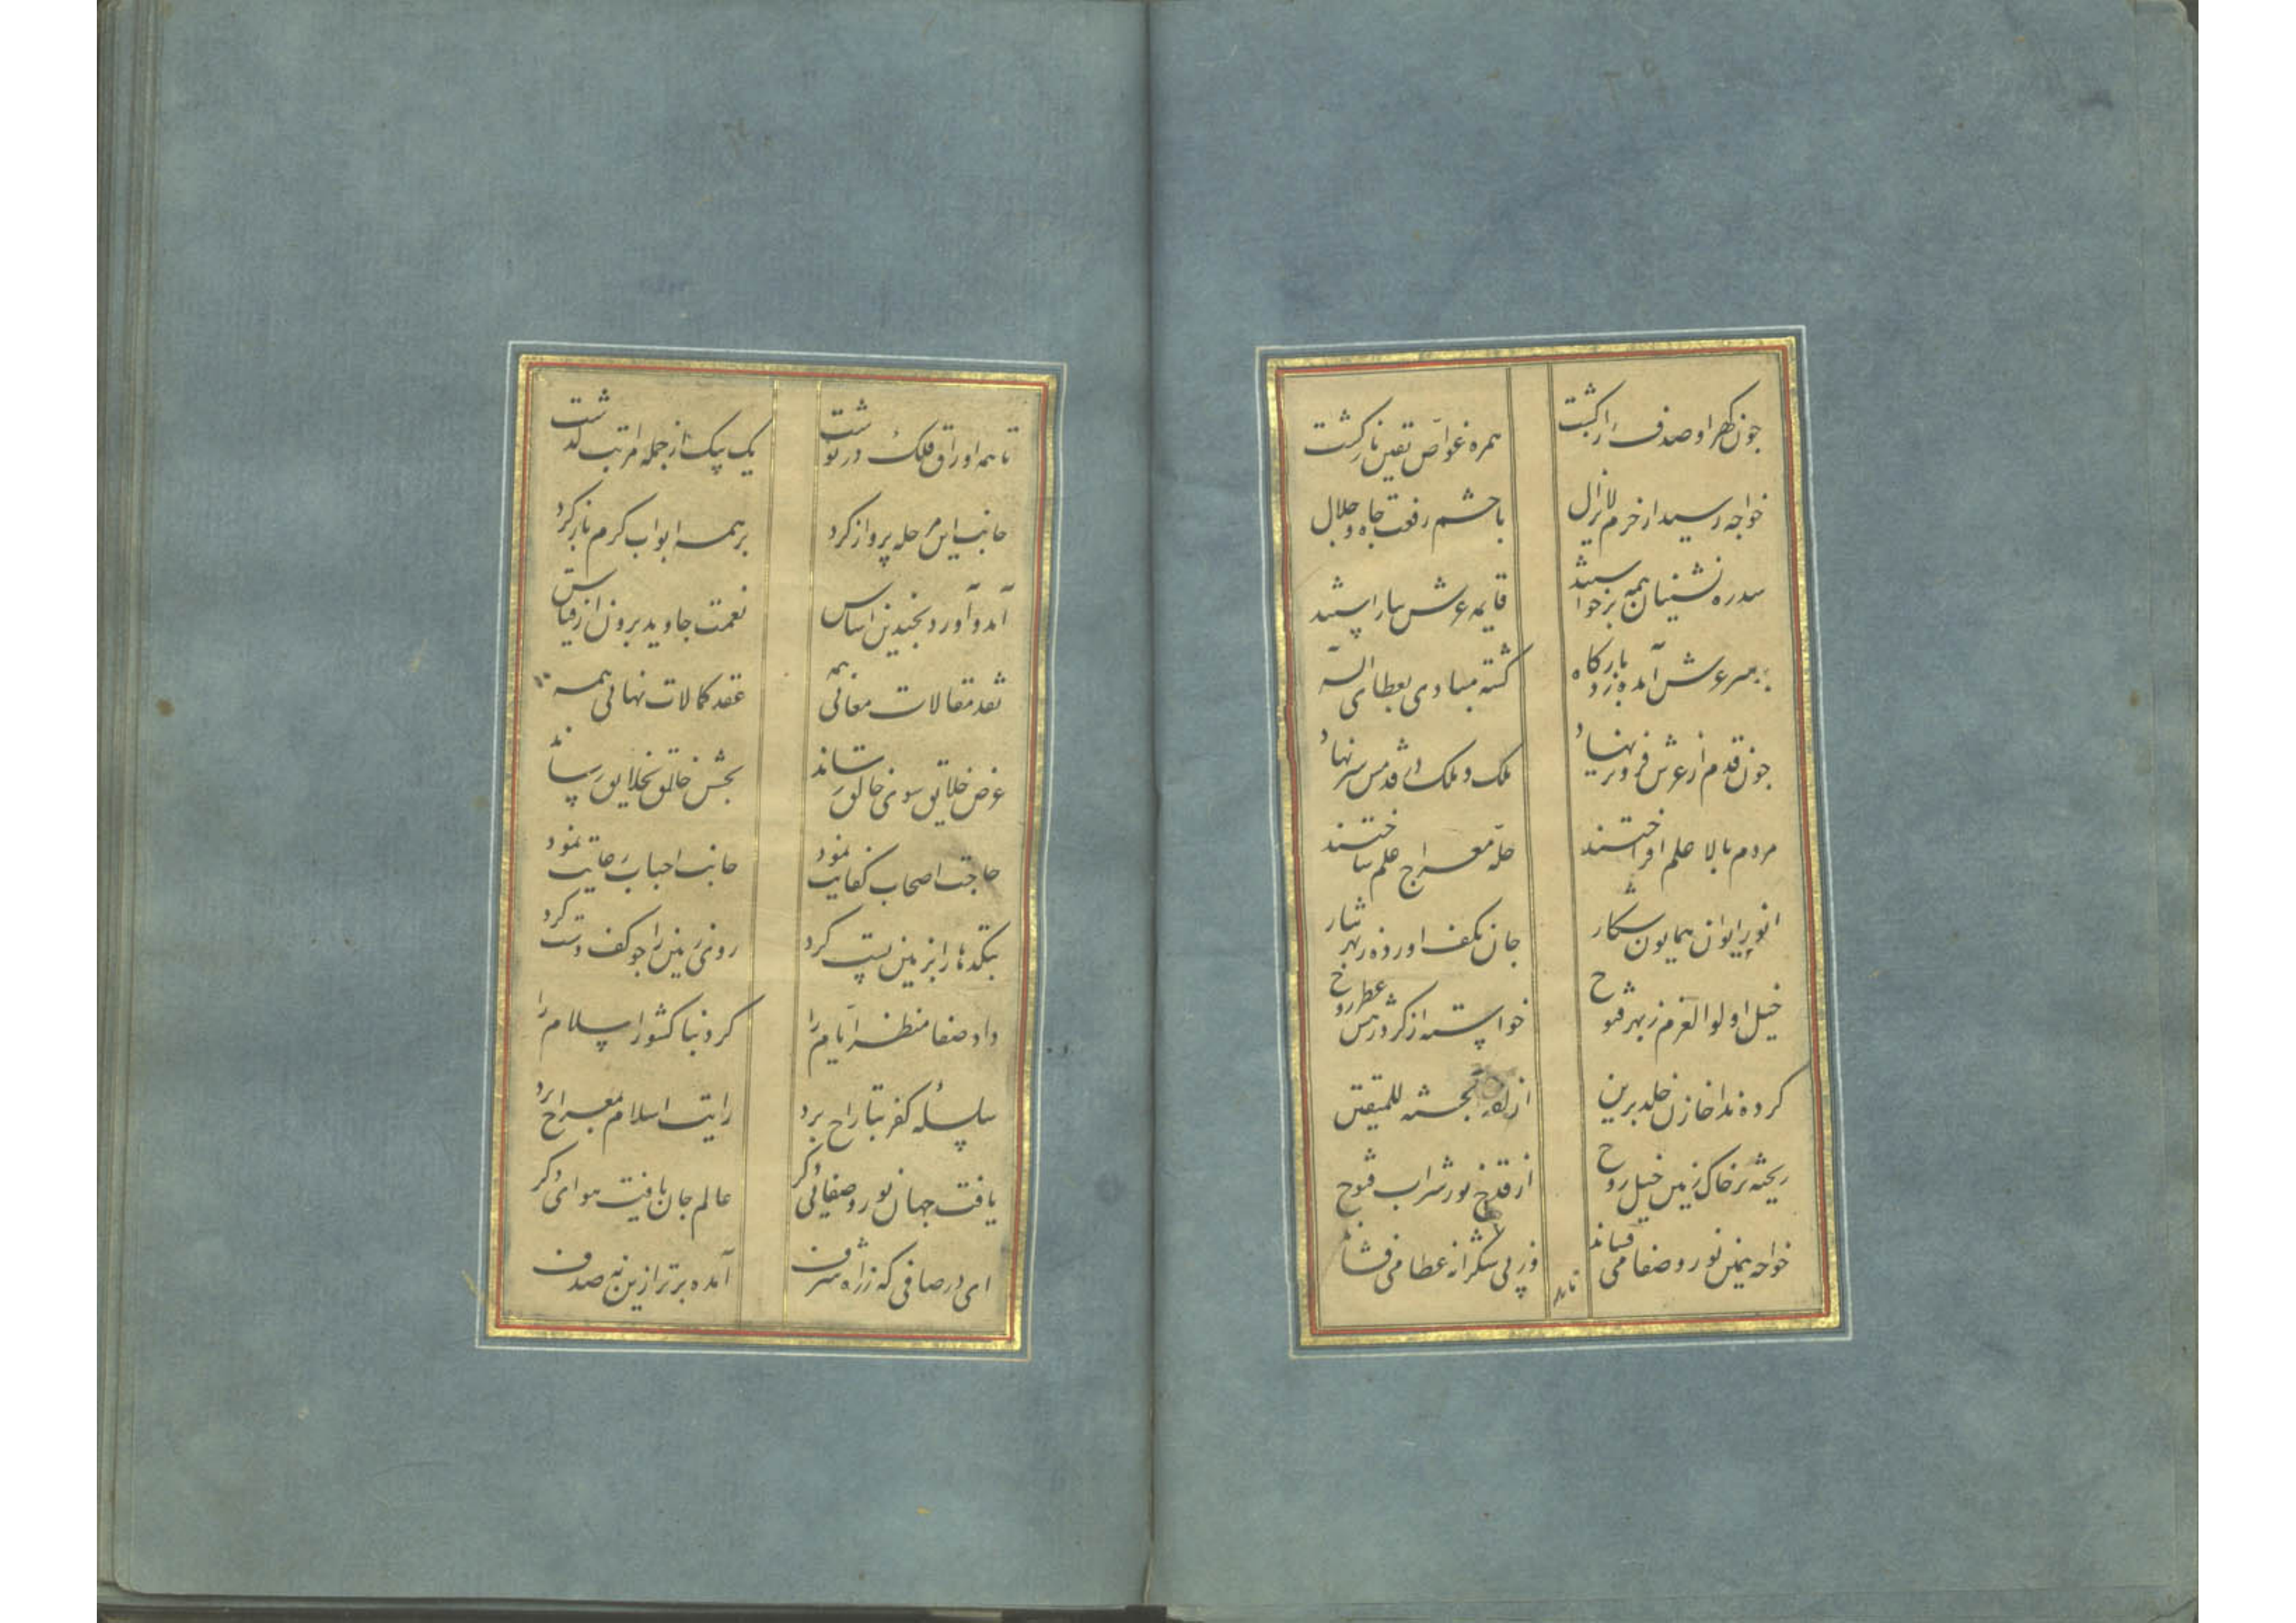 چون گهر او صدف راز گشت
همره غواص یقین باز گشت
خواجه رسید از حرم لایزال
با حشم رفعت و جاه و جلال
سدره نشینان همه برخواستند
قایمه عرش بیاراستند
بر سر عرش آمده زد بارگاه
گشته منادی بعطای اله
چون قدم از عرش فروتر نهاد
ملک و ملک در قدمش سر نهاد
مردم بالا علم افراختند
حله معراج علم ساختند
انور ایوان همایون شکار
جان بکف آورده ز بهر نثار
خیل اولوالعزم ز بهر فتوح
خواسته از گرد رهش عطر روح
کرده ندا خازن خلد برین
ازلفت الجنة للمتقین
ریخته بر خاک زمین خیل روح
از قدح نور شراب فتوح
خواجه بیمن نور و صفا می فشاند
وز پی شکرانه عطا می فشاند
تا همه
تا همه اوراق فلک در نوشت
یک بیک از جمله مراتب گذشت
جانب این مرحله پرواز کرد
بر همه ابواب کرم باز کرد
آمد و آورد بچندین اساس
نعمت جاوید برون از قیاس
نقد مقالات معانی همه
عقد کمالات نهانی همه
عرض خلایق سوی خالق رساند
بخشش خالق بخلایق رساند
حاجت اصحاب کفایت نمود
جانب احباب رعایت نمود
بتکدها را بزمین پست کرد
روی زمین را چو کف دست کرد
داد صفا منظر ایام را
کرد بنا کشور اسلام را
سلسله کفر بتاراج برد
رایت اسلام بمعراج برد
یافت جهان نور و صفائی دگر
عالم جان یافت هوای دگر
ای در صافی که ز راه شرف
آمده برتر ازین نه صدف